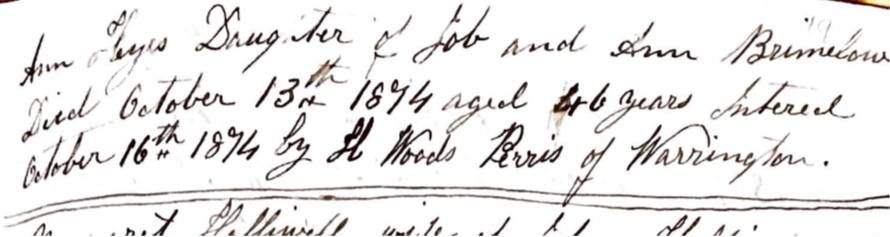 Ann Heyes Daughter of Job and Ann Brimelow
Died October 13th 1894 aged 46 years Intered
October 16th 1894 by H Woods Perris of Warrington.
Margaret Helliwell wife of